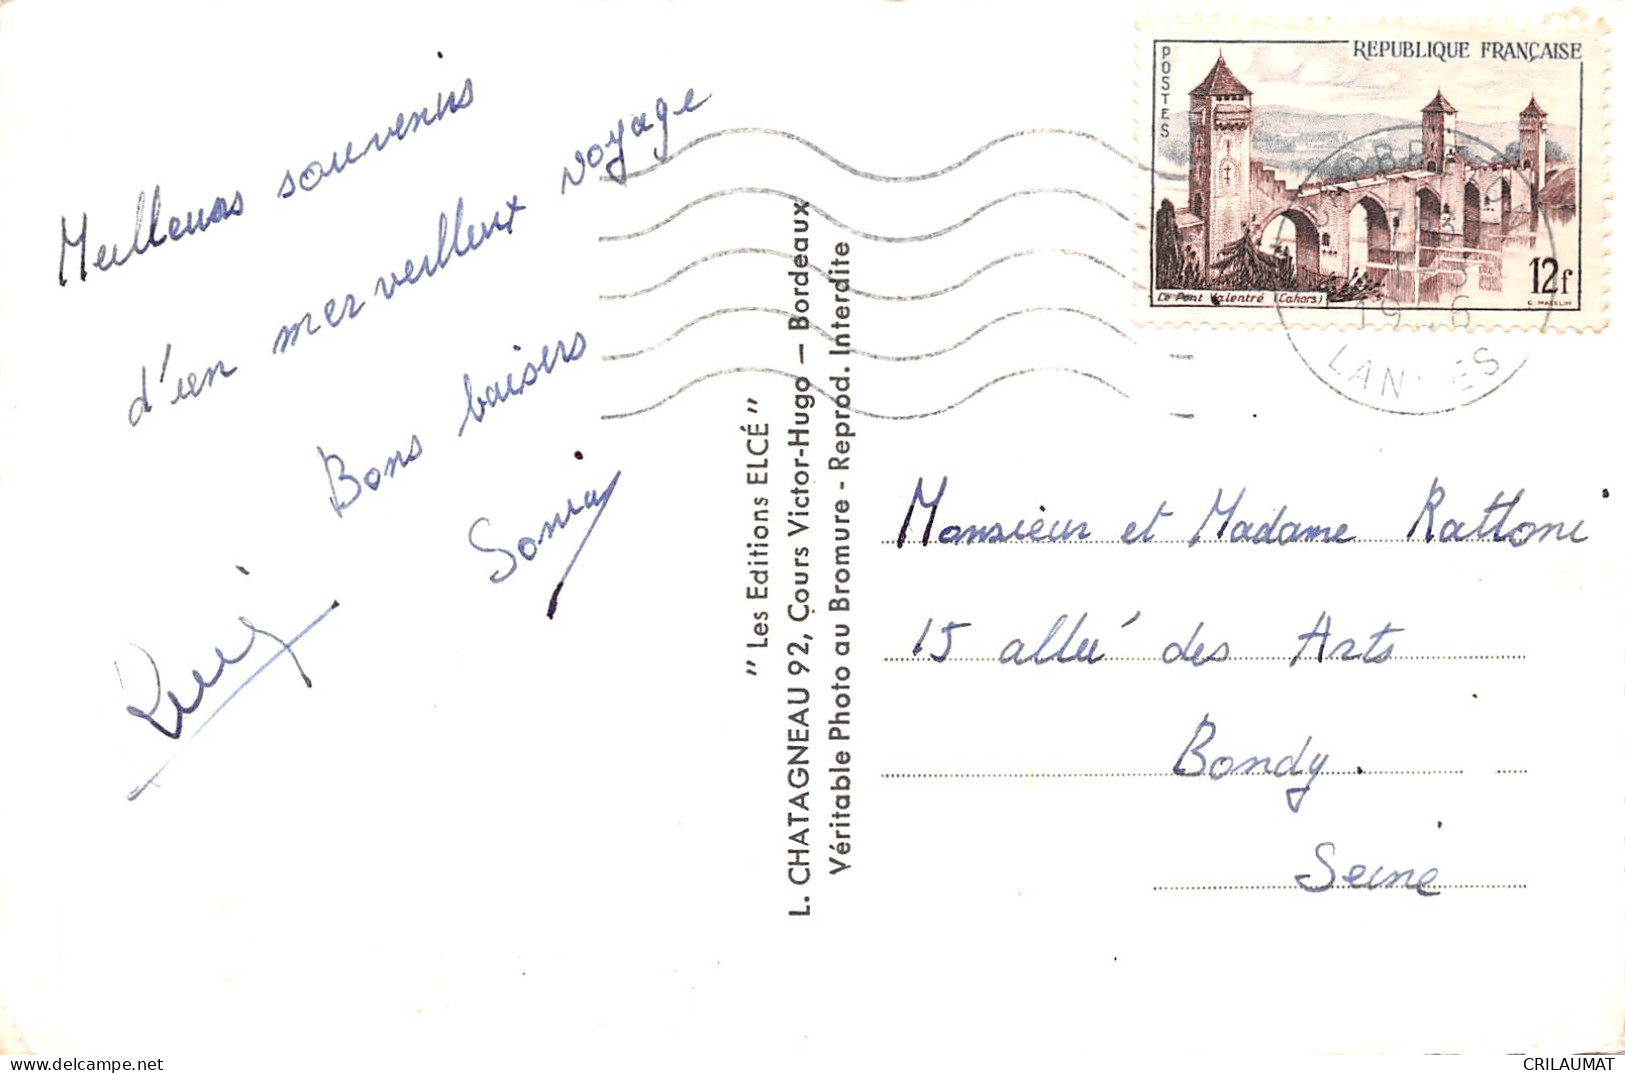 Meilleurs souvenirs
d'un merveilleux voyage
Bons baisers
Sonia
" Les Editions ELCÉ "
L. CHATAGNEAU 92, Cours Victor-Hugo — Bordeaux
Véritable Photo au Bromure - Reprod. Interdite
POSTES
REPUBLIQUE FRANÇAISE
12f
Le Pont Valentré (Cahors)
LANDES
Monsieur et Madame Rattoni
15 allée des Arts
Bondy.
Seine
delcampe.net
CRILAUMAT